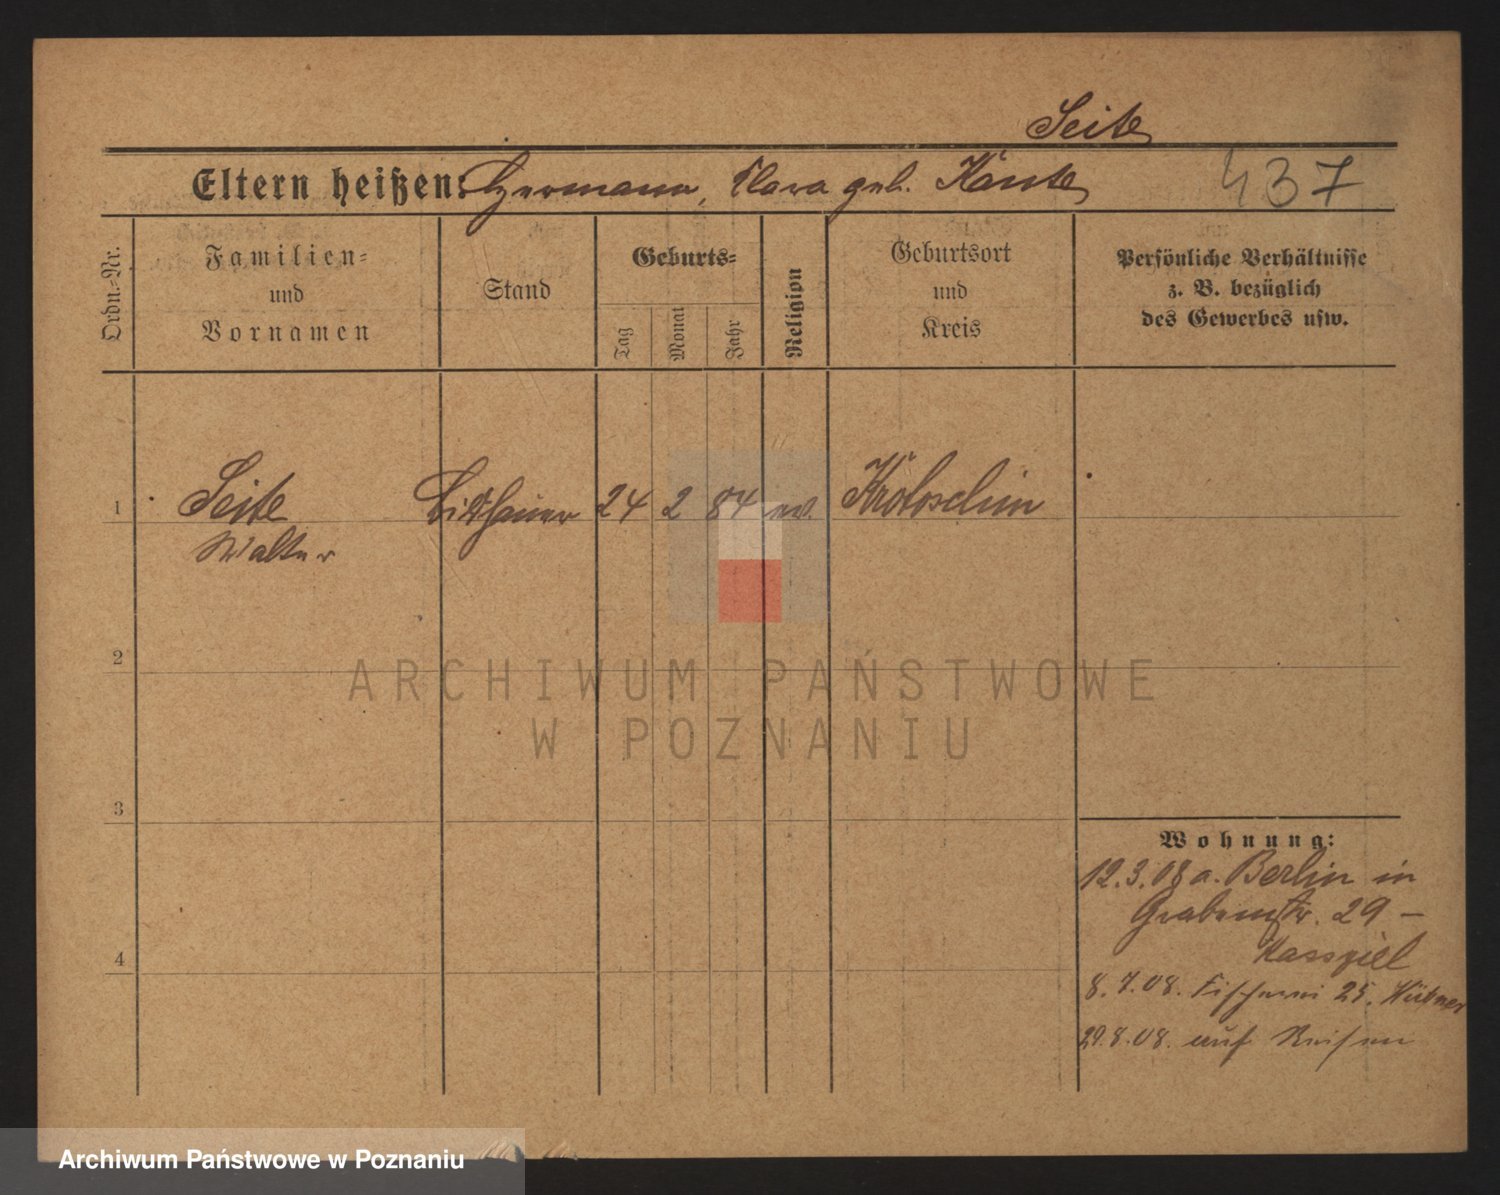 Seite
Eltern heißen: Hermann, Klara geb. Kante
437
Ordn.-Nr.
Familien-
und
Vornamen
Stand
Geburts-
Tag
Monat
Jahr
Religion
Geburtsort
und
Kreis
Persönliche Verhältnisse
z. B. bezüglich
des Gewerbes usw.
1
Seite
Walter
Bildhauer
24
2
84
ev.
Krotoschin
2
ARCHIWUM PAŃSTWOWE
W POZNANIU
3
Wohnung:
12.3.08 a. Berlin in
Grabenstr. 29 –
8.7.08. Fischerei 25.
4
29.8.08. auf Reisen
Archiwum Państwowe w Poznaniu